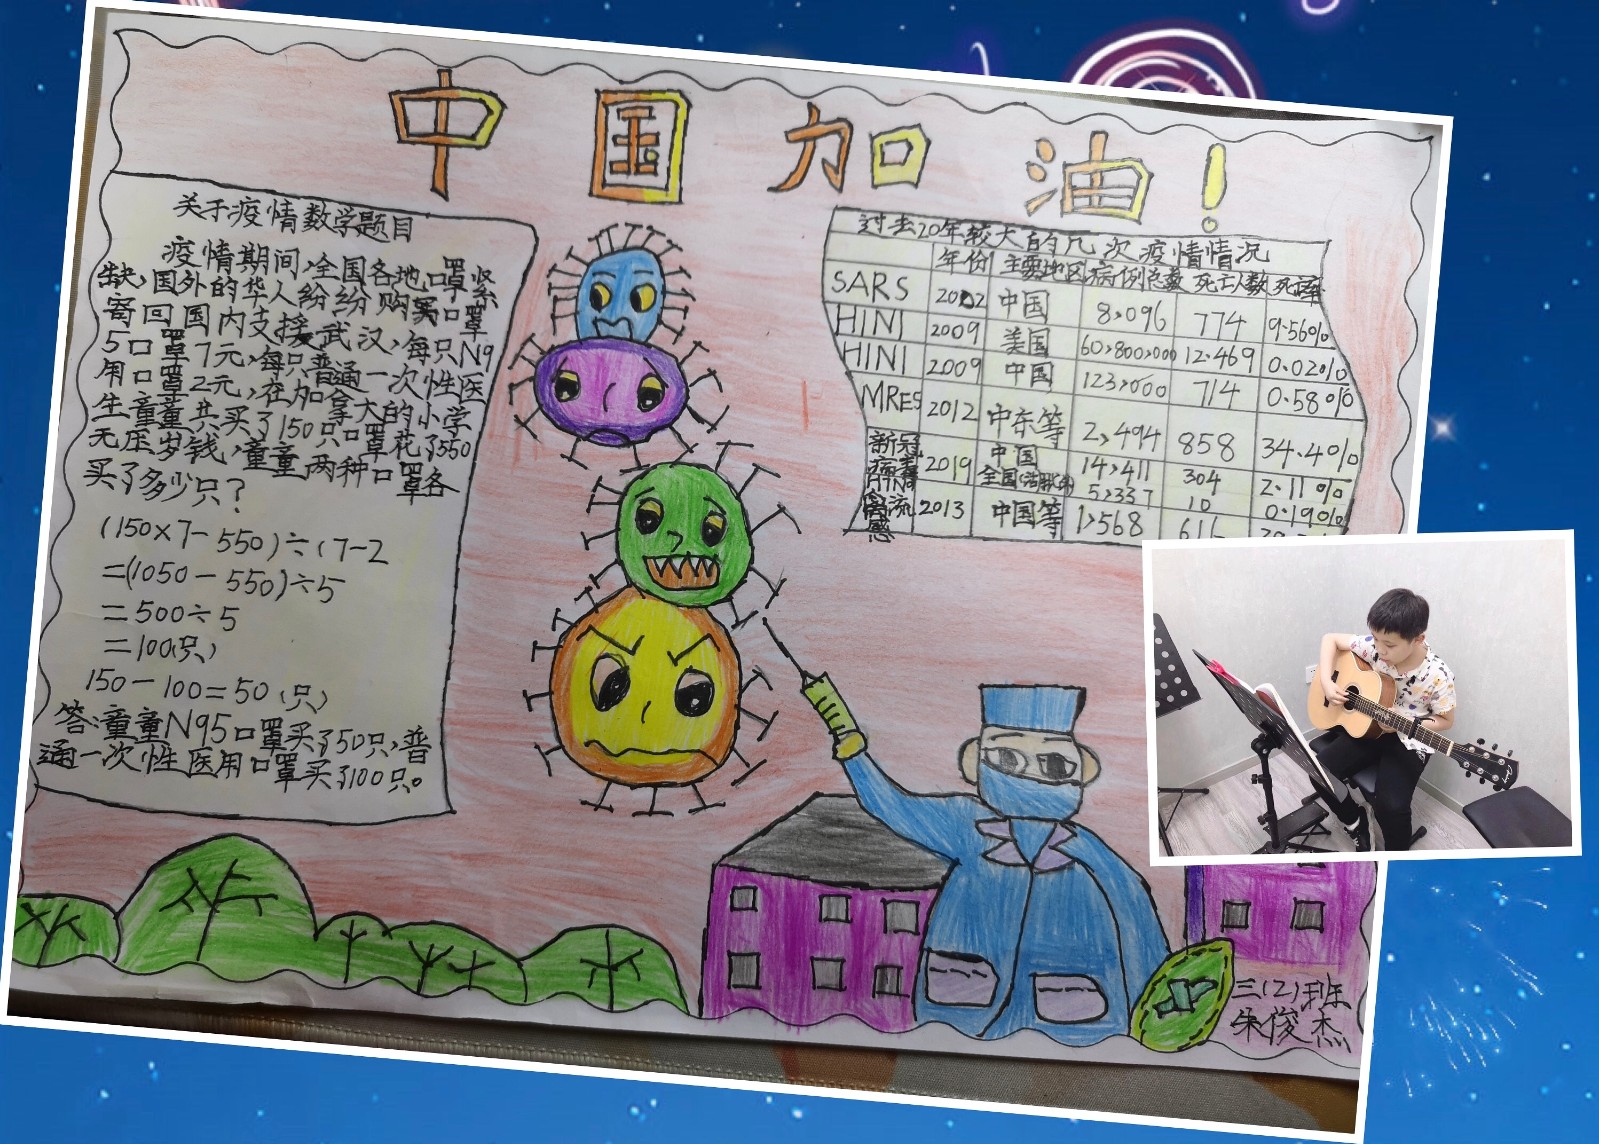 中国加油!
关于疫情数学题目
疫情期间,全国各地口罩紧
缺,国外的华人纷纷购买口罩
寄回国内支援武汉,每只N9
5口罩7元,每只普通一次性医
用口罩2元,在加拿大的小学
生童童共买了150只口罩花了550
元压岁钱,童童两种口罩各
买了多少只?
(150×7-550)÷(7-2
=(1050-550)÷5
=500÷5
=100(只)
150-100=50(只)
答:童童N95口罩买了50只,普
通一次性医用口罩买了100只。
过去20年较大的几次疫情情况
年份 主要地区 病例总数 死亡人数 死亡率
SARS 2002 中国 8,096 774 9.56%
H1N1 2009 美国 60,800,000 12.469 0.02%
H1N1 2009 中国 123,000 714 0.58%
MRES 2012 中东等 2,494 858 34.4%
新冠病毒 2019 中国 14,411 304 2.11%
全国 5,337 10 0.19%
H7N9禽流感 2013 中国等 1,568 616
三(2)班
朱俊杰